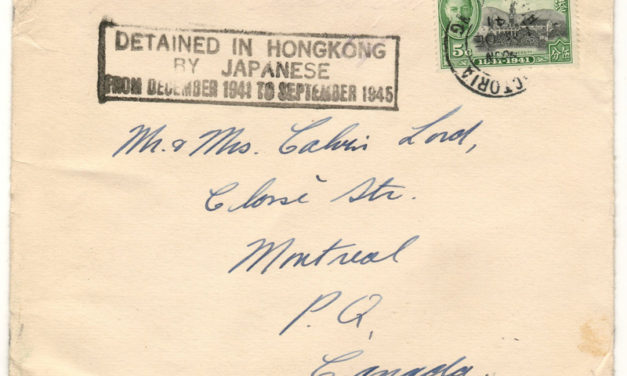 DETAINED IN HONGKONG
BY JAPANESE
FROM DECEMBER 1941 TO SEPTEMBER 1945
5¢
1841-1941
VICTORIA
Mr. & Mrs. Calvin Lord,
Closse Str.
Montreal
P. Q.
Canada.